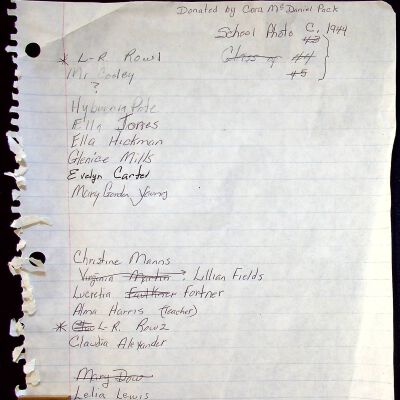 Donated by Cora McDaniel Pack
School Photo C. 1944
43
Class of 44
45
* L-R Row 1
Mr. Cooley
?
Ella Jones
Ella Hickman
Glenice Mills
Evelyn Carter
Mary Gordon Young
Christine Manns
Virginia Martin Lillian Fields
Lucretia Faulkner Fortner
Alma Harris (teacher)
* L-R. Row 2
Claudia Alexander
Mary Dow
Lelia Lewis